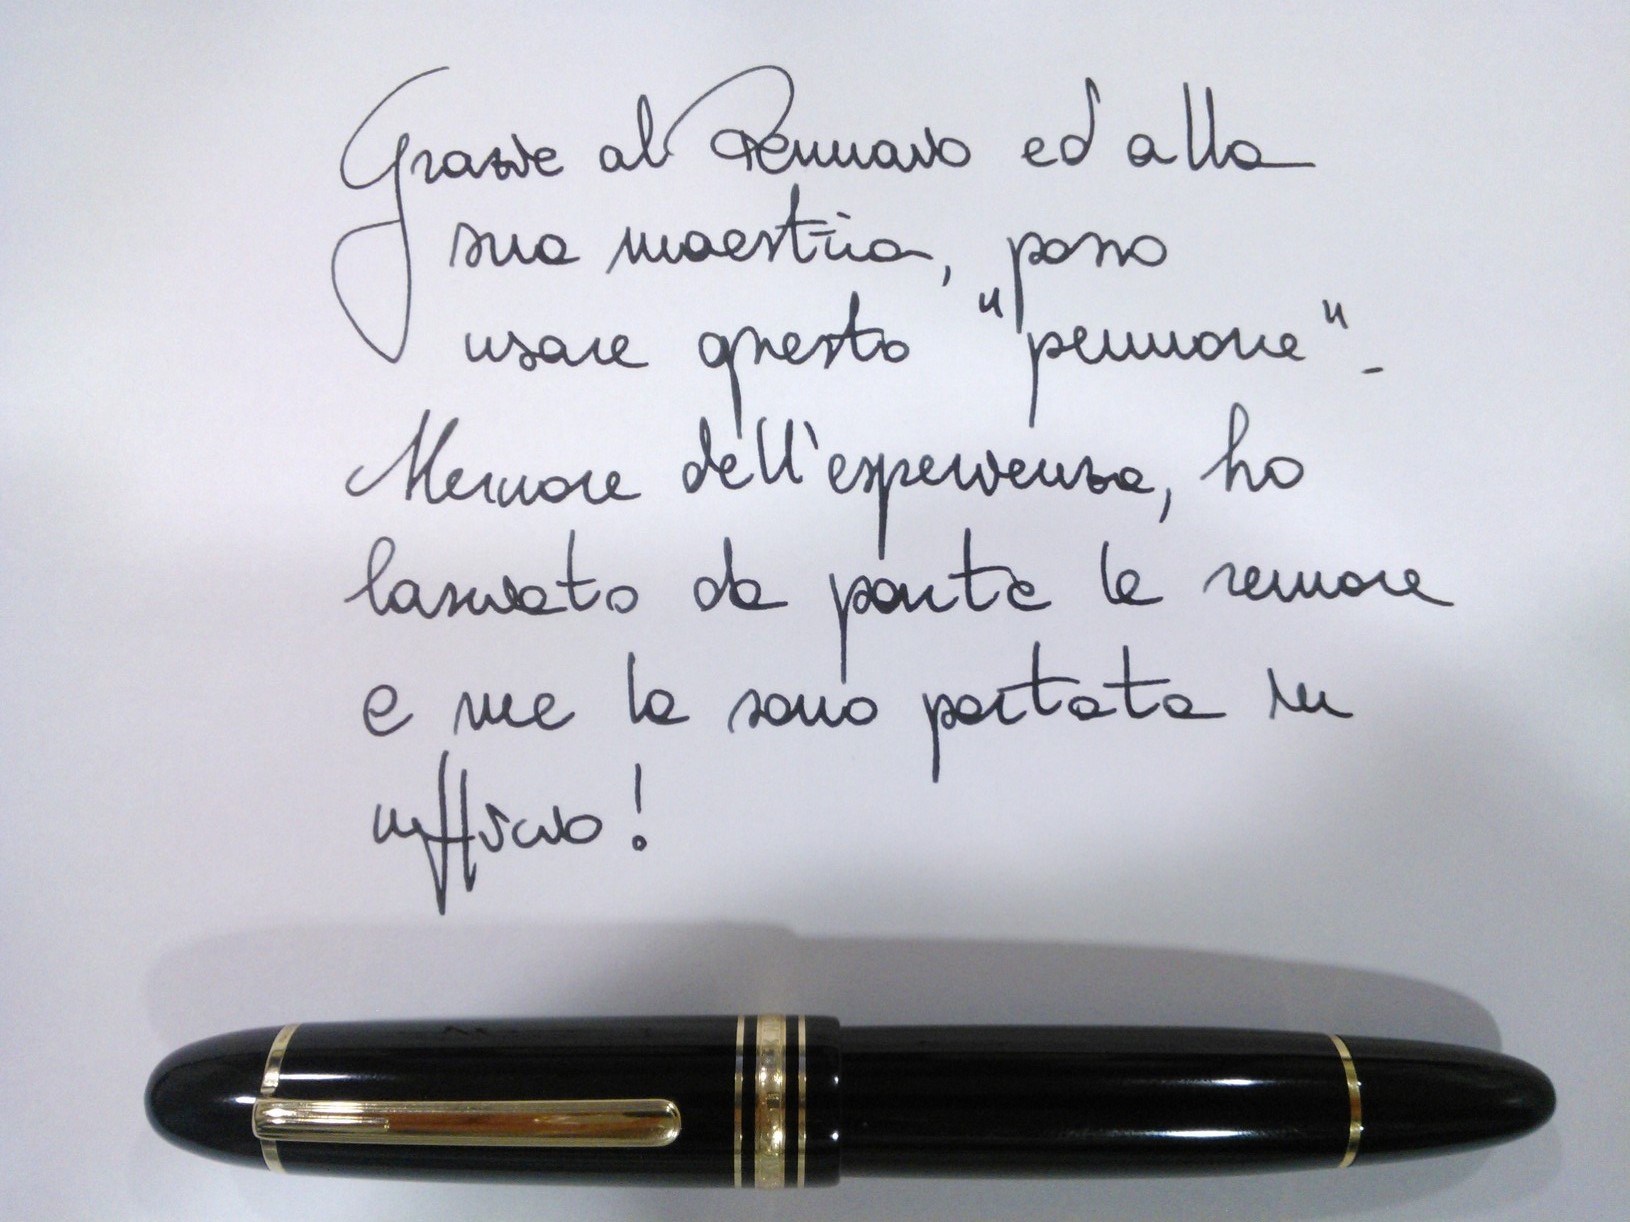 Grazie al Pennaio ed alla
sua maestria, posso
usare questo "pennone".
Memore dell'esperienza, ho
lasciato da parte le remore
e me la sono portata in
ufficio!